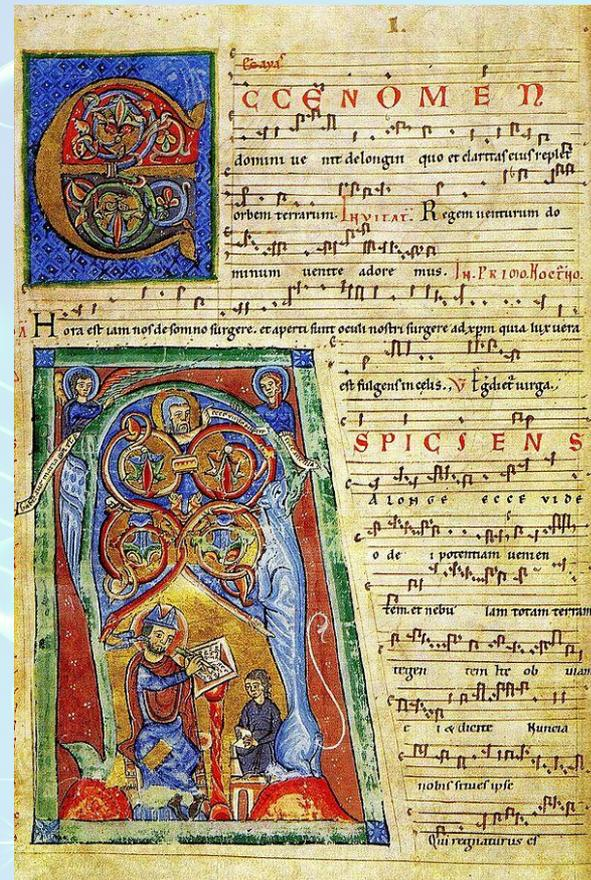 1.
CCE NOMEN
domini ue nit delongin quo et claritas eius replet
orbem terrarum. INVITAT. Regem uenturum do
minum uenite adore mus. IN. PRIMO. Nocturno.
Hora est iam nos de somno surgere. et aperti sunt oculi nostri surgere ad xpm quia lux uera
est fulgens in celis. V Egdiet uirga.
SPICIENS
A LONGE ECCE VIDE
o de i potentiam uenien
tem. et nebu lam totam terram
tegen tem Ite ob uiam
e i & dicite Nuncia
nobis si tu es ipse
Qui regnaturus es